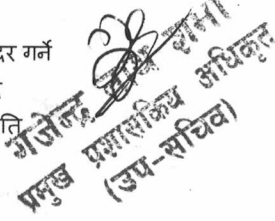 दर गर्ने
ति
गजेन्द्र
प्रमुख प्रशासकिय अधिकृत
(उप-सचिव)